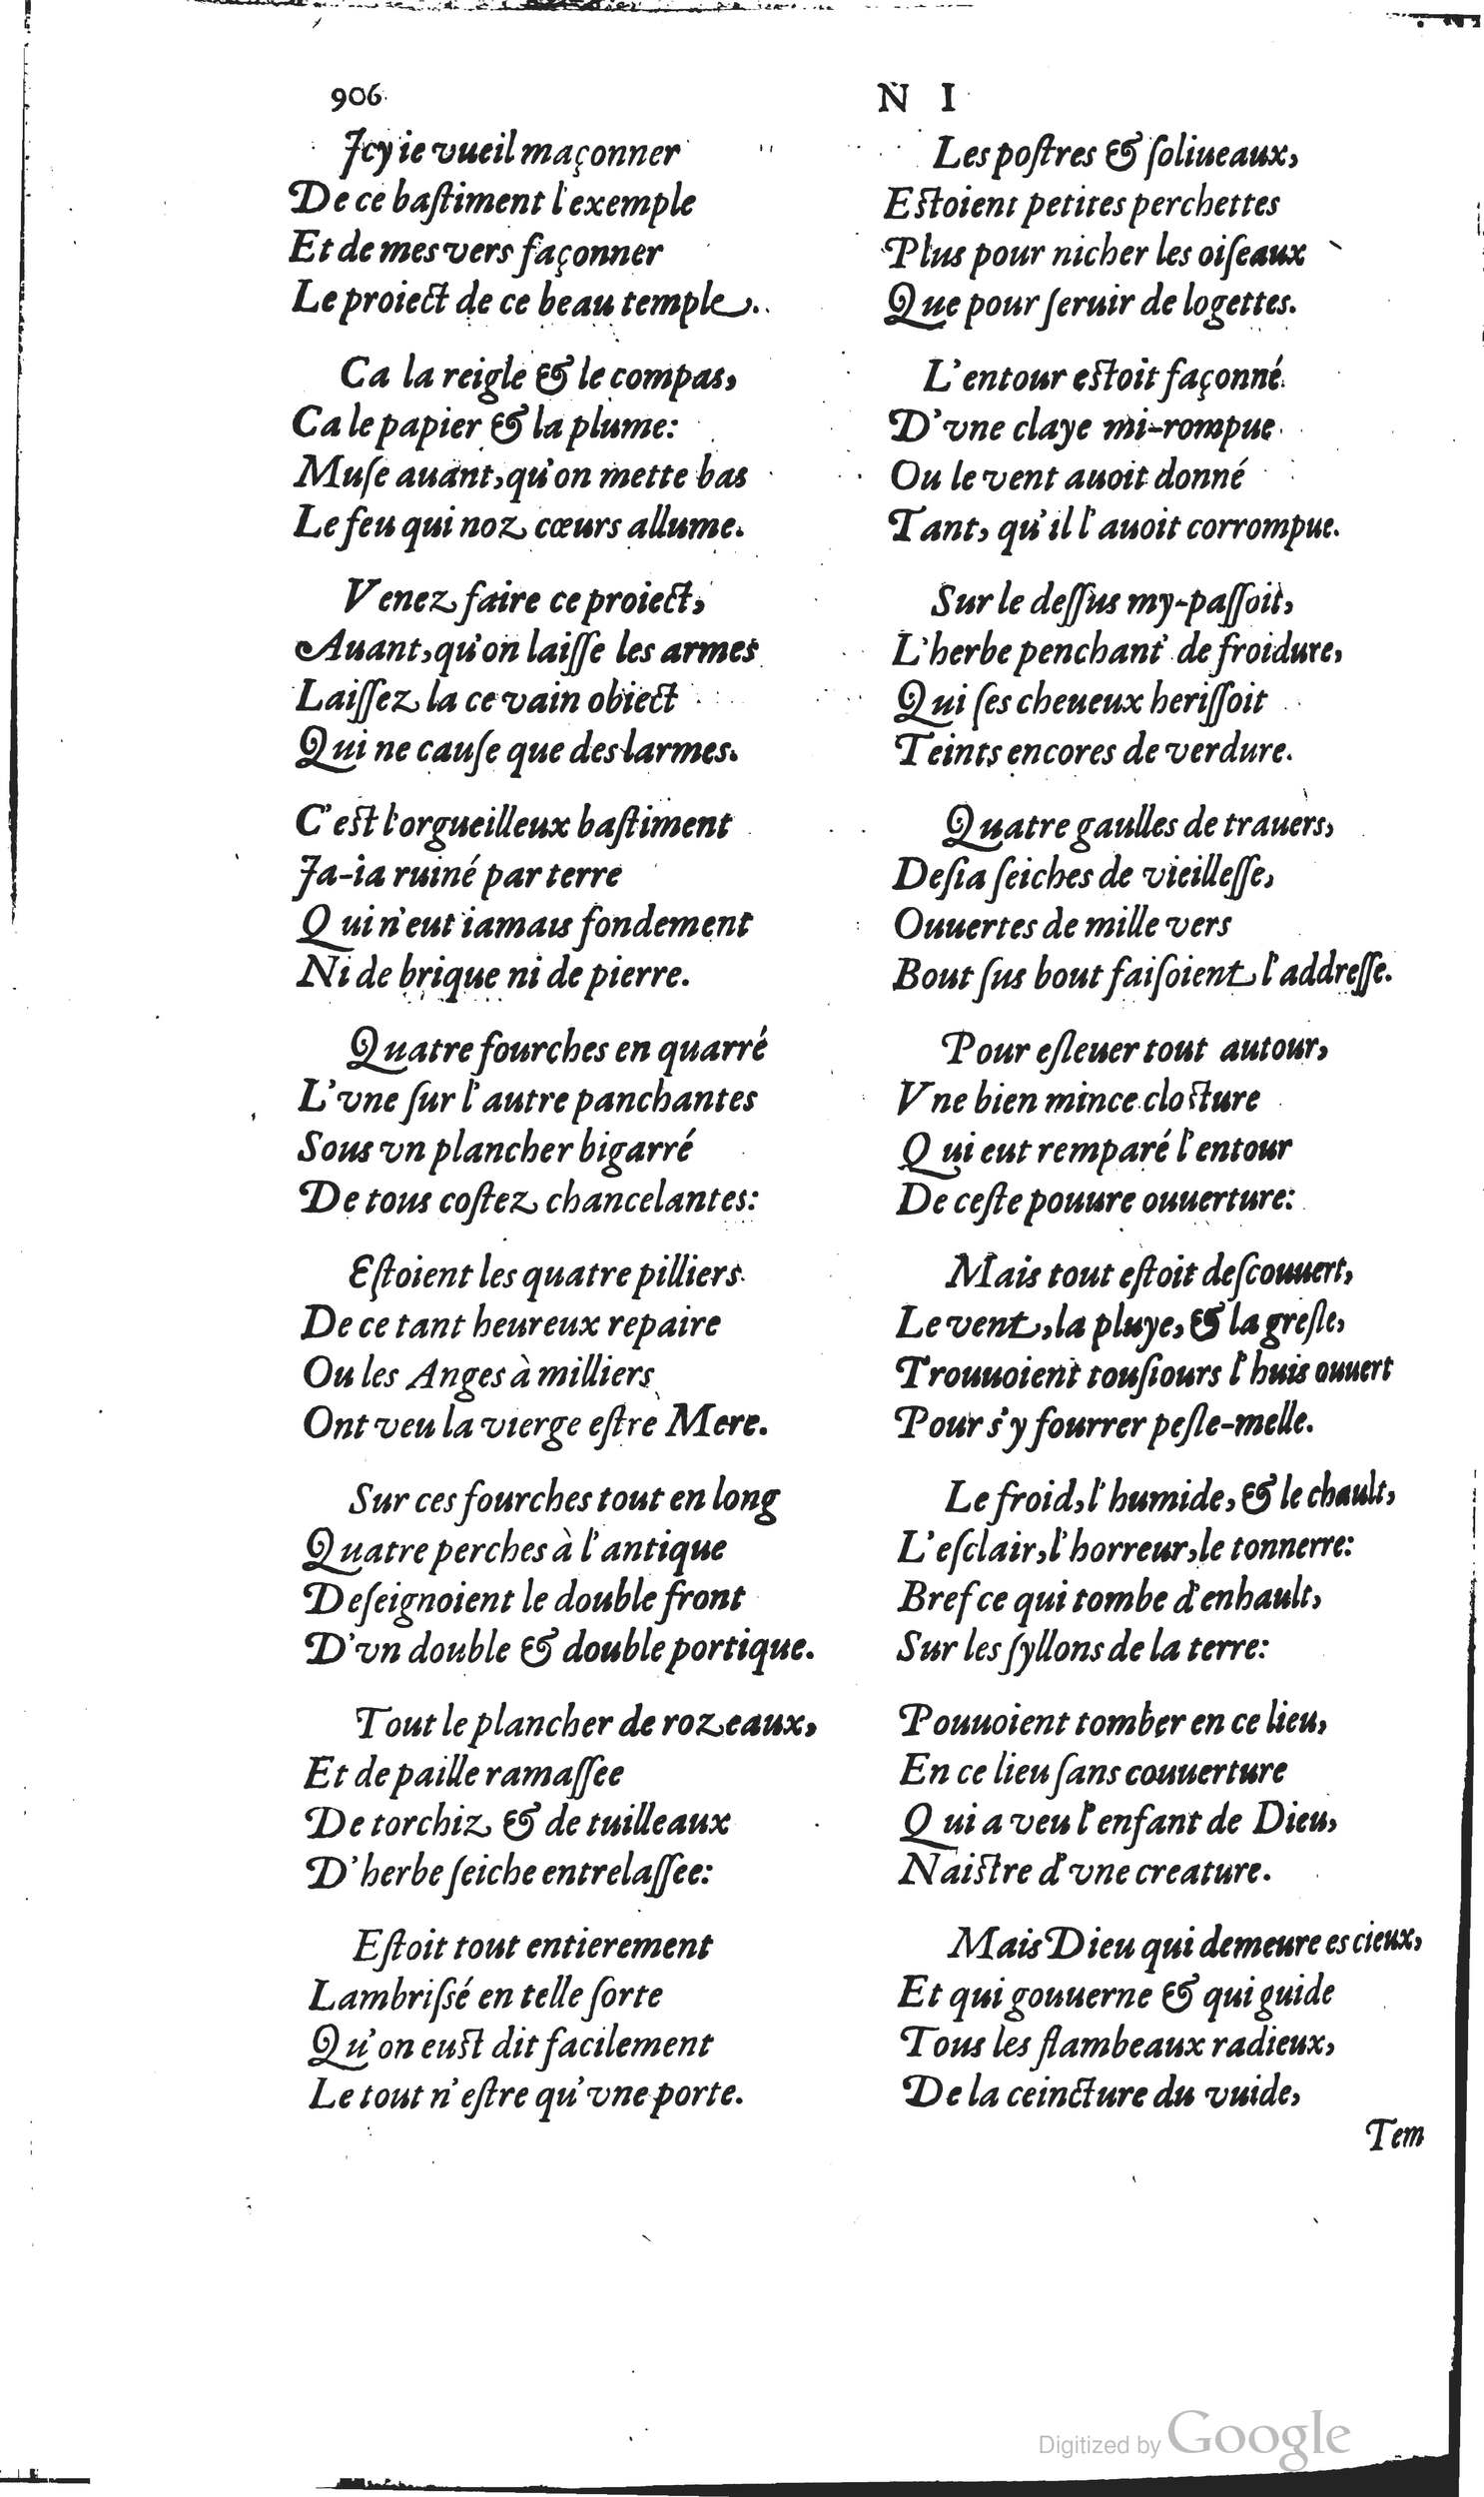 906
N I
Icy ie vueil maçonner
De ce baſtiment l'exemple
Et de mes vers façonner
Le proiect de ce beau temple.
Ca la reigle & le compas,
Ca le papier & la plume:
Muſe auant, qu'on mette bas
Le feu qui noz cœurs allume.
Venez faire ce proiect,
Auant, qu'on laiſſe les armes
Laiſſez la ce vain obiect
Qui ne cauſe que des larmes.
C'eſt l'orgueilleux baſtiment
Ja-ia ruiné par terre
Qui n'eut iamais fondement
Ni de brique ni de pierre.
Quatre fourches en quarré
L'vne ſur l'autre panchantes
Sous vn plancher bigarré
De tous coſtez chancelantes:
Eſtoient les quatre pilliers
De ce tant heureux repaire
Ou les Anges à milliers
Ont veu la vierge eſtre Mere.
Sur ces fourches tout en long
Quatre perches à l'antique
Deſeignoient le double front
D'vn double & double portique.
Tout le plancher de rozeaux,
Et de paille ramaſſee
De torchiz & de tuilleaux
D'herbe ſeiche entrelaſſee:
Eſtoit tout entierement
Lambriſsé en telle ſorte
Qu'on euſt dit facilement
Le tout n'eſtre qu'vne porte.
Les poſtres & ſoliueaux,
Eſtoient petites perchettes
Plus pour nicher les oiſeaux
Que pour ſeruir de logettes.
L'entour eſtoit façonné
D'vne claye mi-rompue
Ou le vent auoit donné
Tant, qu'il l'auoit corrompue.
Sur le deſſus my-paſſoit,
L'herbe penchant de froidure,
Qui ſes cheueux heriſſoit
Teints encores de verdure.
Quatre gaulles de trauers,
Deſia ſeiches de vieilleſſe,
Ouuertes de mille vers
Bout ſus bout faiſoient l'addreſſe.
Pour eſleuer tout autour,
Vne bien mince cloſture
Qui eut remparé l'entour
De ceſte pouure ouuerture:
Mais tout eſtoit deſcouuert,
Le vent, la pluye, & la greſle,
Trouuoient touſiours l'huis ouuert
Pour s'y fourrer peſle-melle.
Le froid, l'humide, & le chault,
L'eſclair, l'horreur, le tonnerre:
Bref ce qui tombe d'enhault,
Sur les ſyllons de la terre:
Pouuoient tomber en ce lieu,
En ce lieu ſans couuerture
Qui a veu l'enfant de Dieu,
Naiſtre d'vne creature.
Mais Dieu qui demeure es cieux,
Et qui gouuerne & qui guide
Tous les flambeaux radieux,
De la ceincture du vuide,
Tem
Digitized by Google